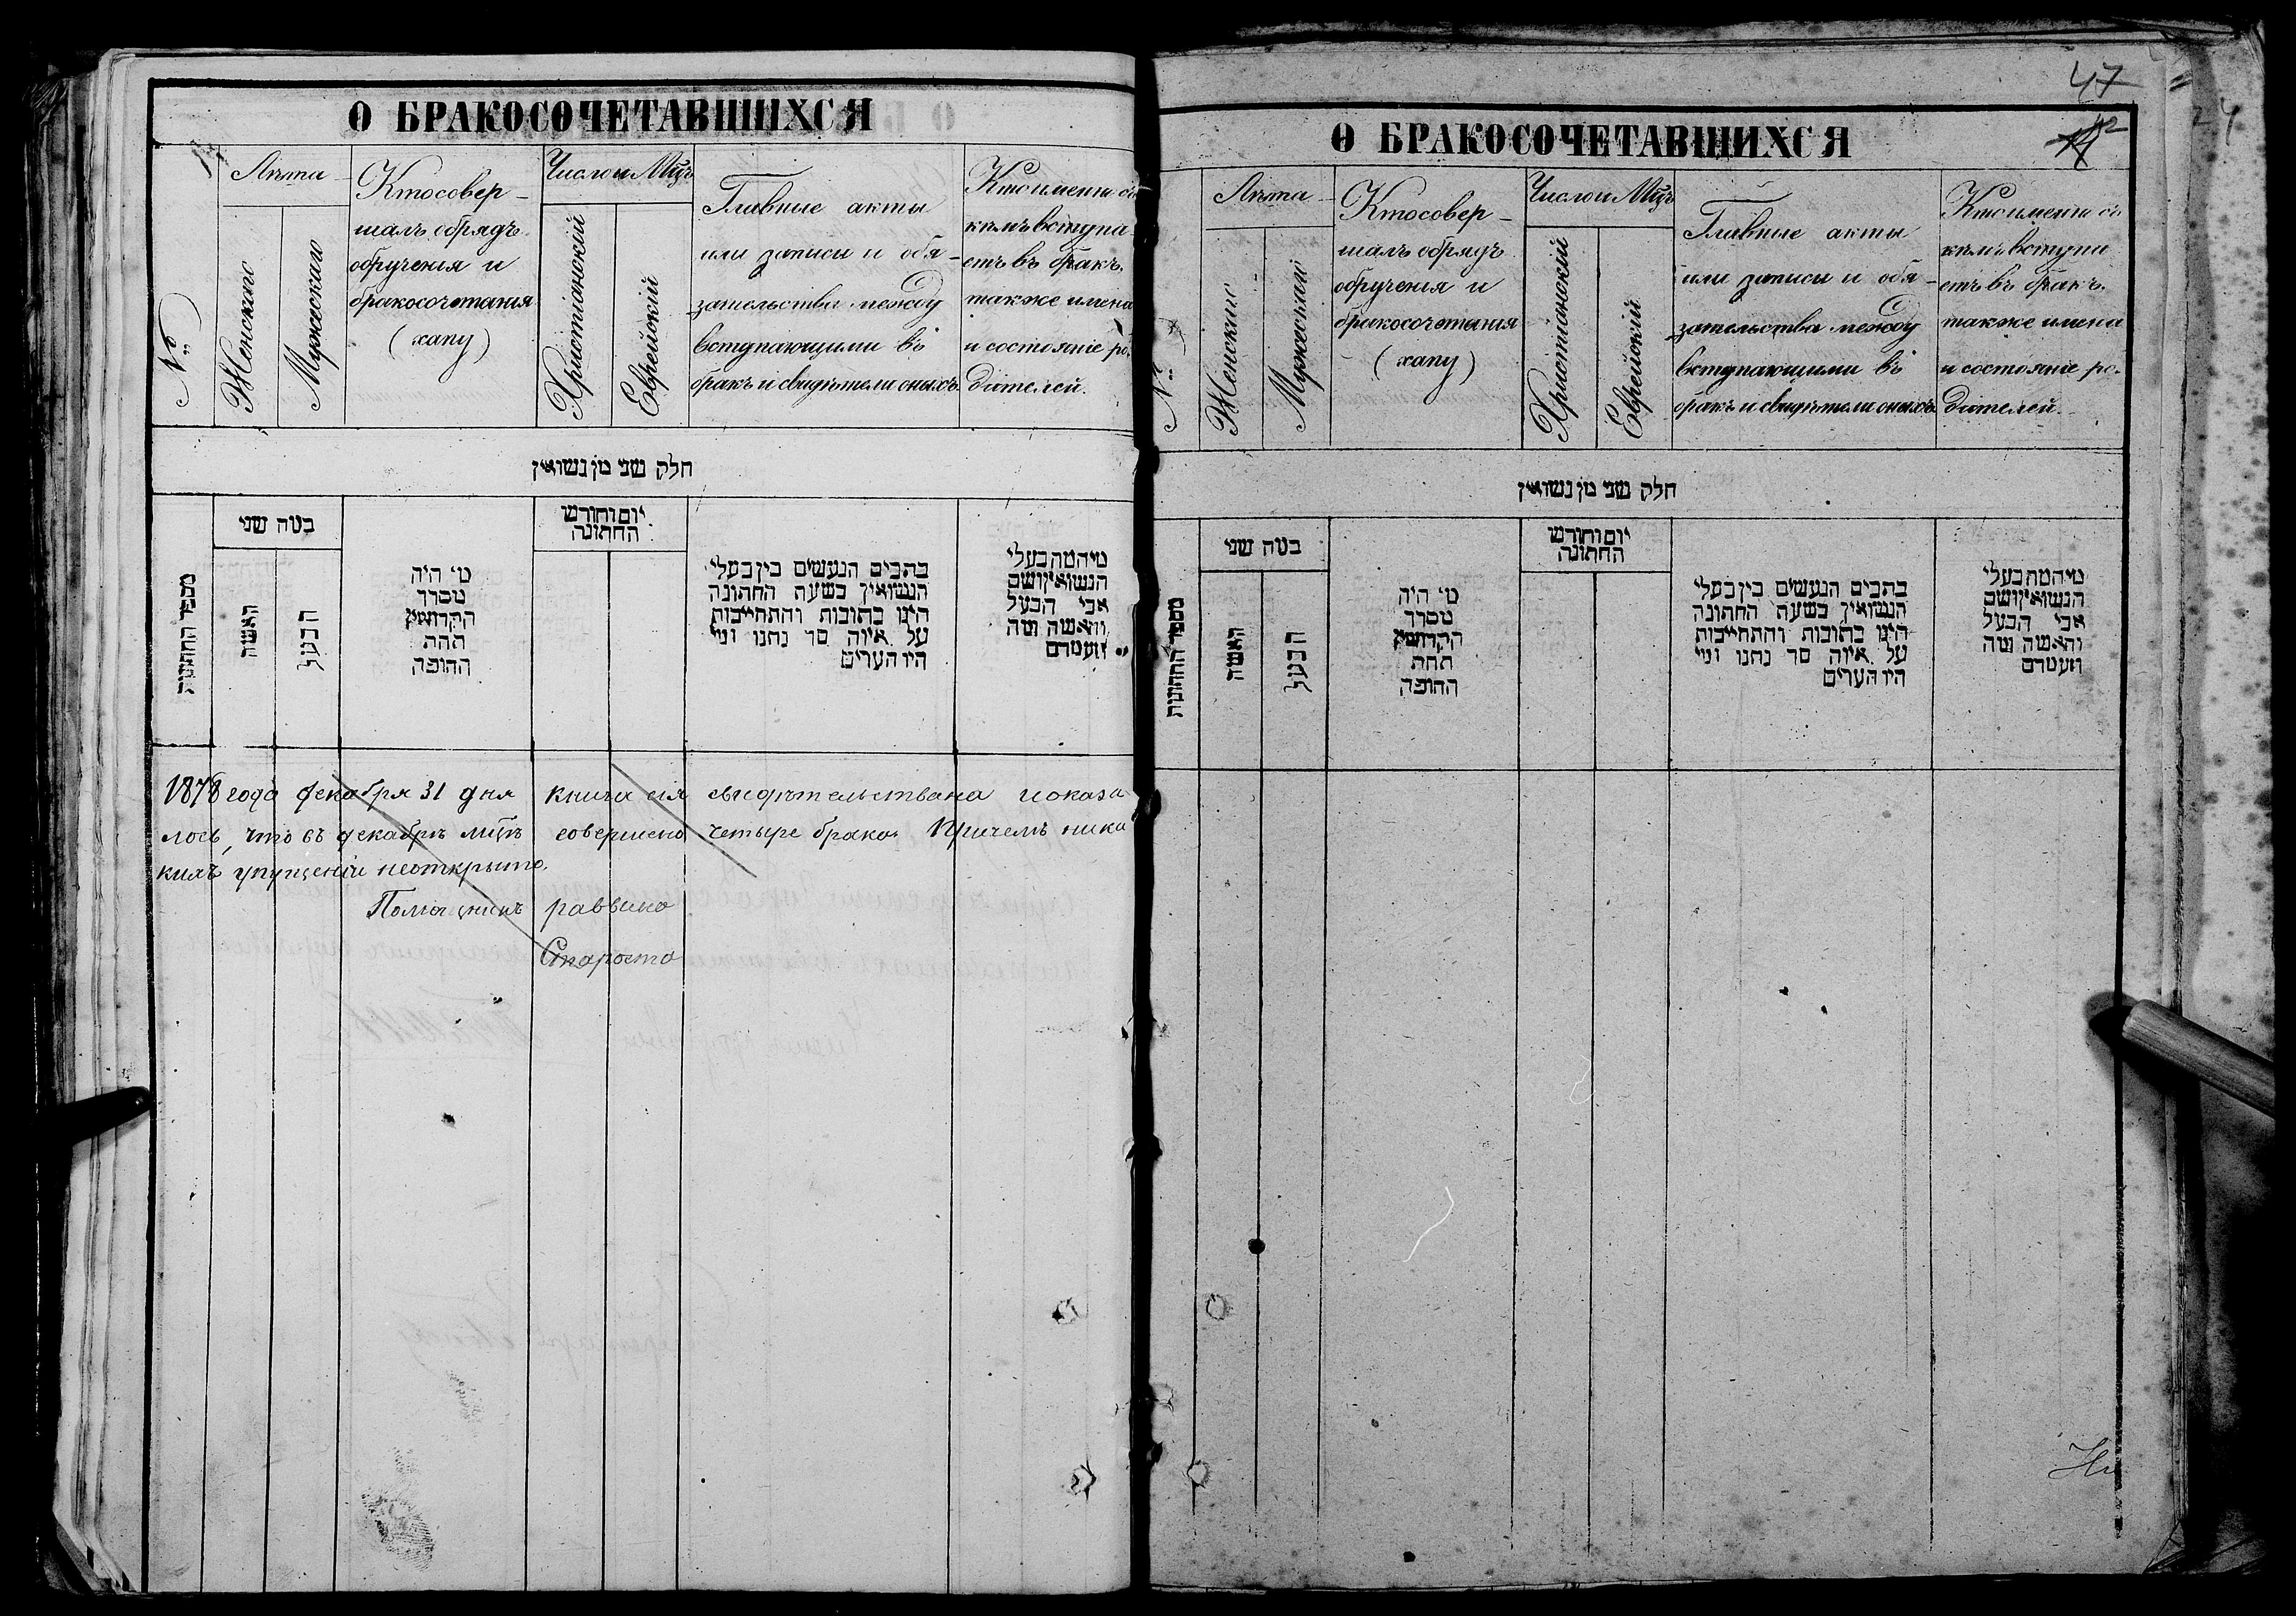 О БРАКОСОЧЕТАВШИХСЯ
№
Лѣта
Женскаго
Мужескаго
Кто совер-
шалъ обрядъ
обрученія и
бракосочетанія
(хапу)
Число и Мцъ
Христіанскій
Еврейскій
Главные акты
или записи и обя-
зательства между
вступающими въ
бракъ и свидѣтели оныхъ.
Кто именно съ
кѣмъ вступа
етъ въ бракъ.
также имена
и состояніе ро.
дителей.
חלק שני מן נשואין
מספר החתונות
במה שני
האשה
הבעל
מי היה
מסדר
הקדושין
תחת
החופה
יום וחודש
החתונה
כתבים הנעשים בין בעלי
הנשואין בשעת החתונה
היינו כתובות והתחייבות
על איזה סך נתנו ומי
היו העדים
מי המה בעלי
הנשואין ושם
אבי הבעל
והאשה ומה
מעמדם
1878 года декабря 31 дня книга сія свидѣтельствана и оказа
лось, что въ декабрѣ мцѣ совершено четыре брака. Причемъ ника
кихъ упущеній неоткрыто.
Помощникъ раввина
Староста
47
О БРАКОСОЧЕТАВШИХСЯ
№
Лѣта
Женскаго
Мужескаго
Кто совер-
шалъ обрядъ
обрученія и
бракосочетанія
(хапу)
Число и Мцъ
Христіанскій
Еврейскій
Главные акты
или записи и обя-
зательства между
вступающими въ
бракъ и свидѣтели оныхъ.
Кто именно съ
кѣмъ вступа
етъ въ бракъ.
также имена
и состояніе ро.
дителей.
חלק שני מן נשואין
מספר החתונות
במה שני
האשה
הבעל
מי היה
מסדר
הקדושין
תחת
החופה
יום וחודש
החתונה
כתבים הנעשים בין בעלי
הנשואין בשעת החתונה
היינו כתובות והתחייבות
על איזה סך נתנו ומי
היו העדים
מי המה בעלי
הנשואין ושם
אבי הבעל
והאשה ומה
מעמדם